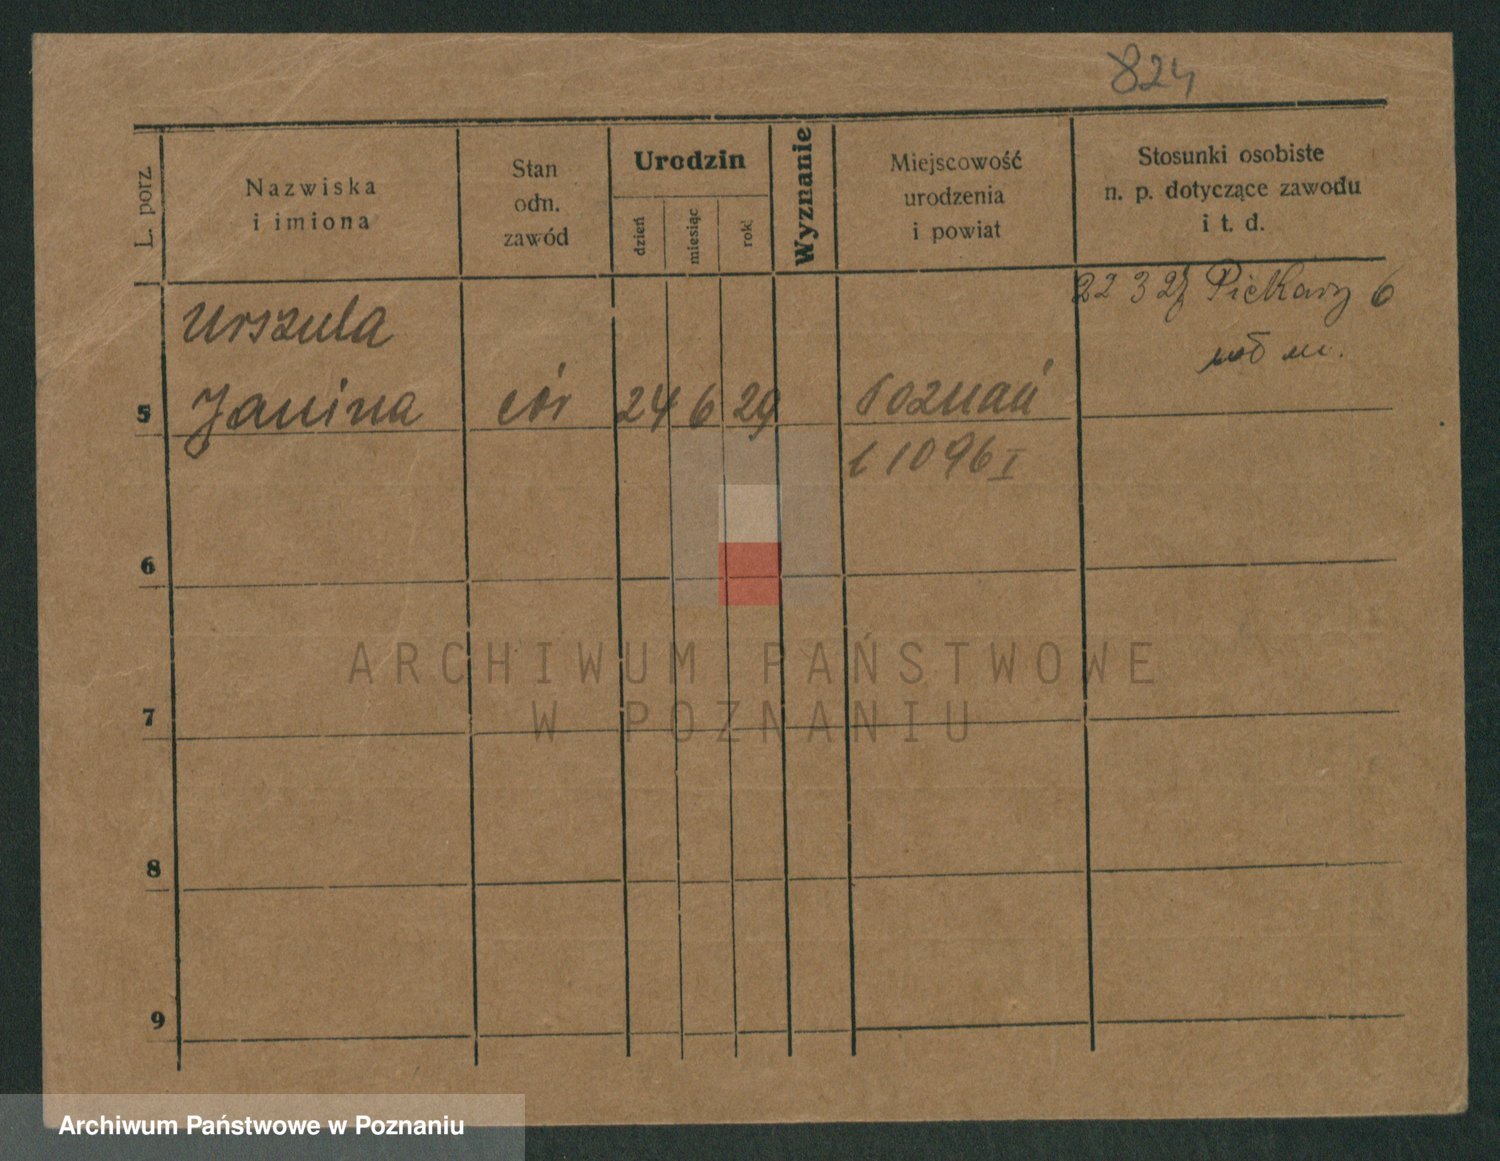 824
L. porz.
Nazwiska
i imiona
Stan
odn.
zawód
Urodzin
dzień
miesiąc
rok
Wyznanie
Miejscowość
urodzenia
i powiat
Stosunki osobiste
n. p. dotyczące zawodu
i t. d.
22 3 27 Piekary 6
Urszula
5 Janina cór 24 6 29 Poznań
1096 I
6
7
8
9
ARCHIWUM PAŃSTWOWE
W POZNANIU
Archiwum Państwowe w Poznaniu